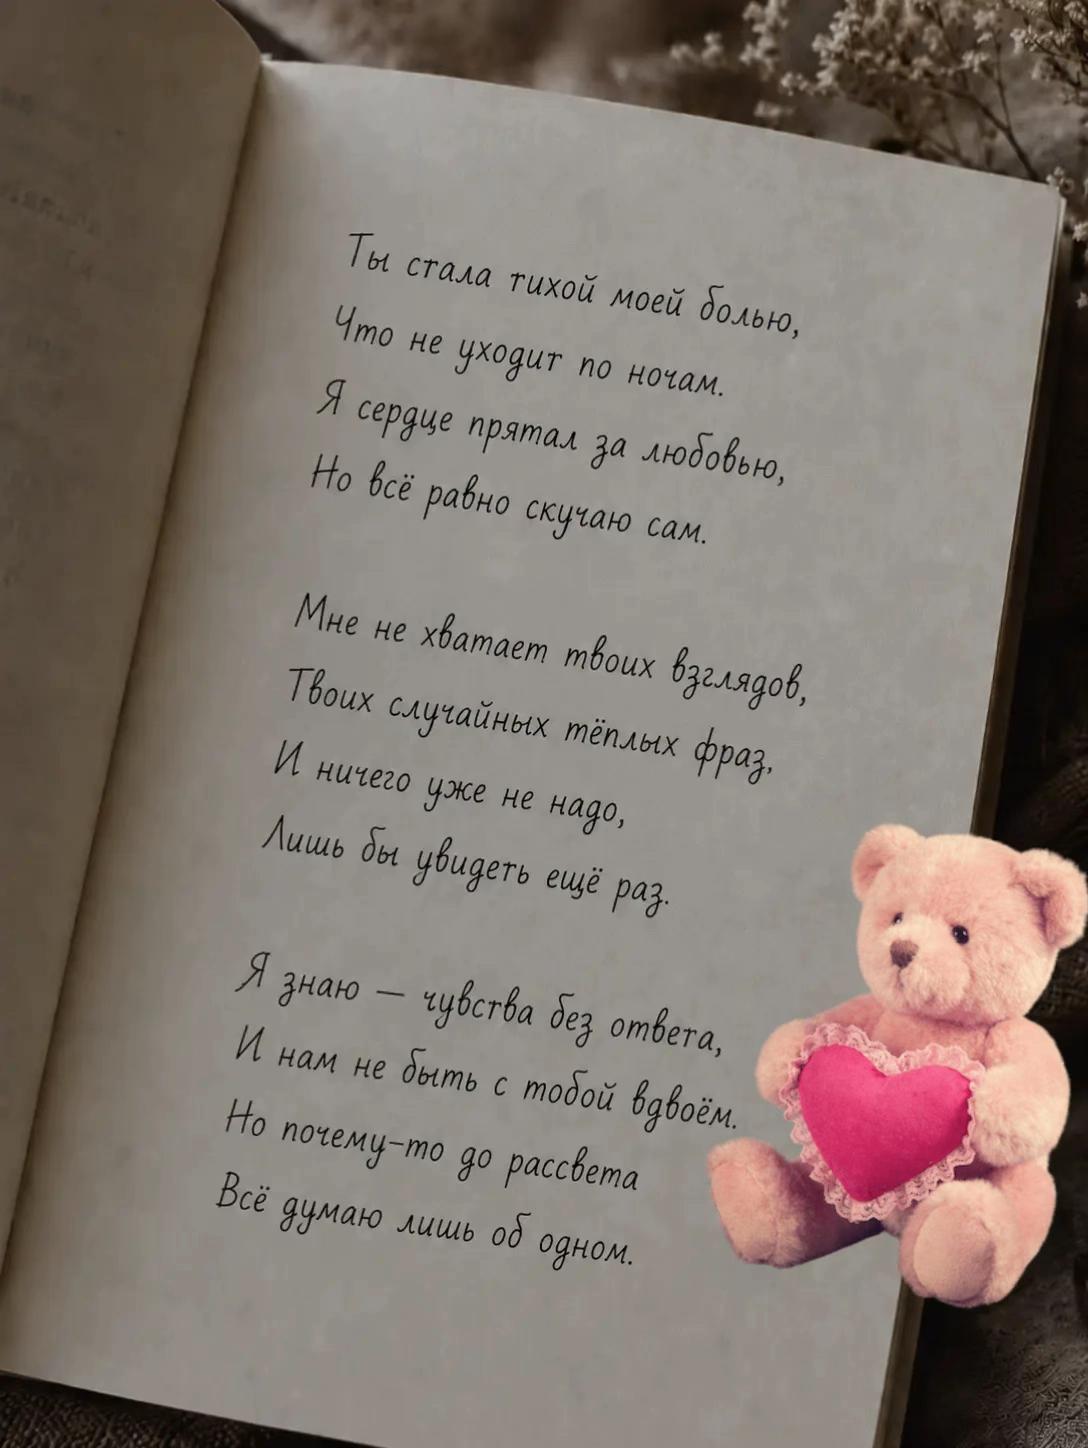 Ты стала тихой моей болью,
Что не уходит по ночам.
Я сердце прятал за любовью,
Но всё равно скучаю сам.
Мне не хватает твоих взглядов,
Твоих случайных тёплых фраз,
И ничего уже не надо,
Лишь бы увидеть ещё раз.
Я знаю — чувства без ответа,
И нам не быть с тобой вдвоём.
Но почему-то до рассвета
Всё думаю лишь об одном.